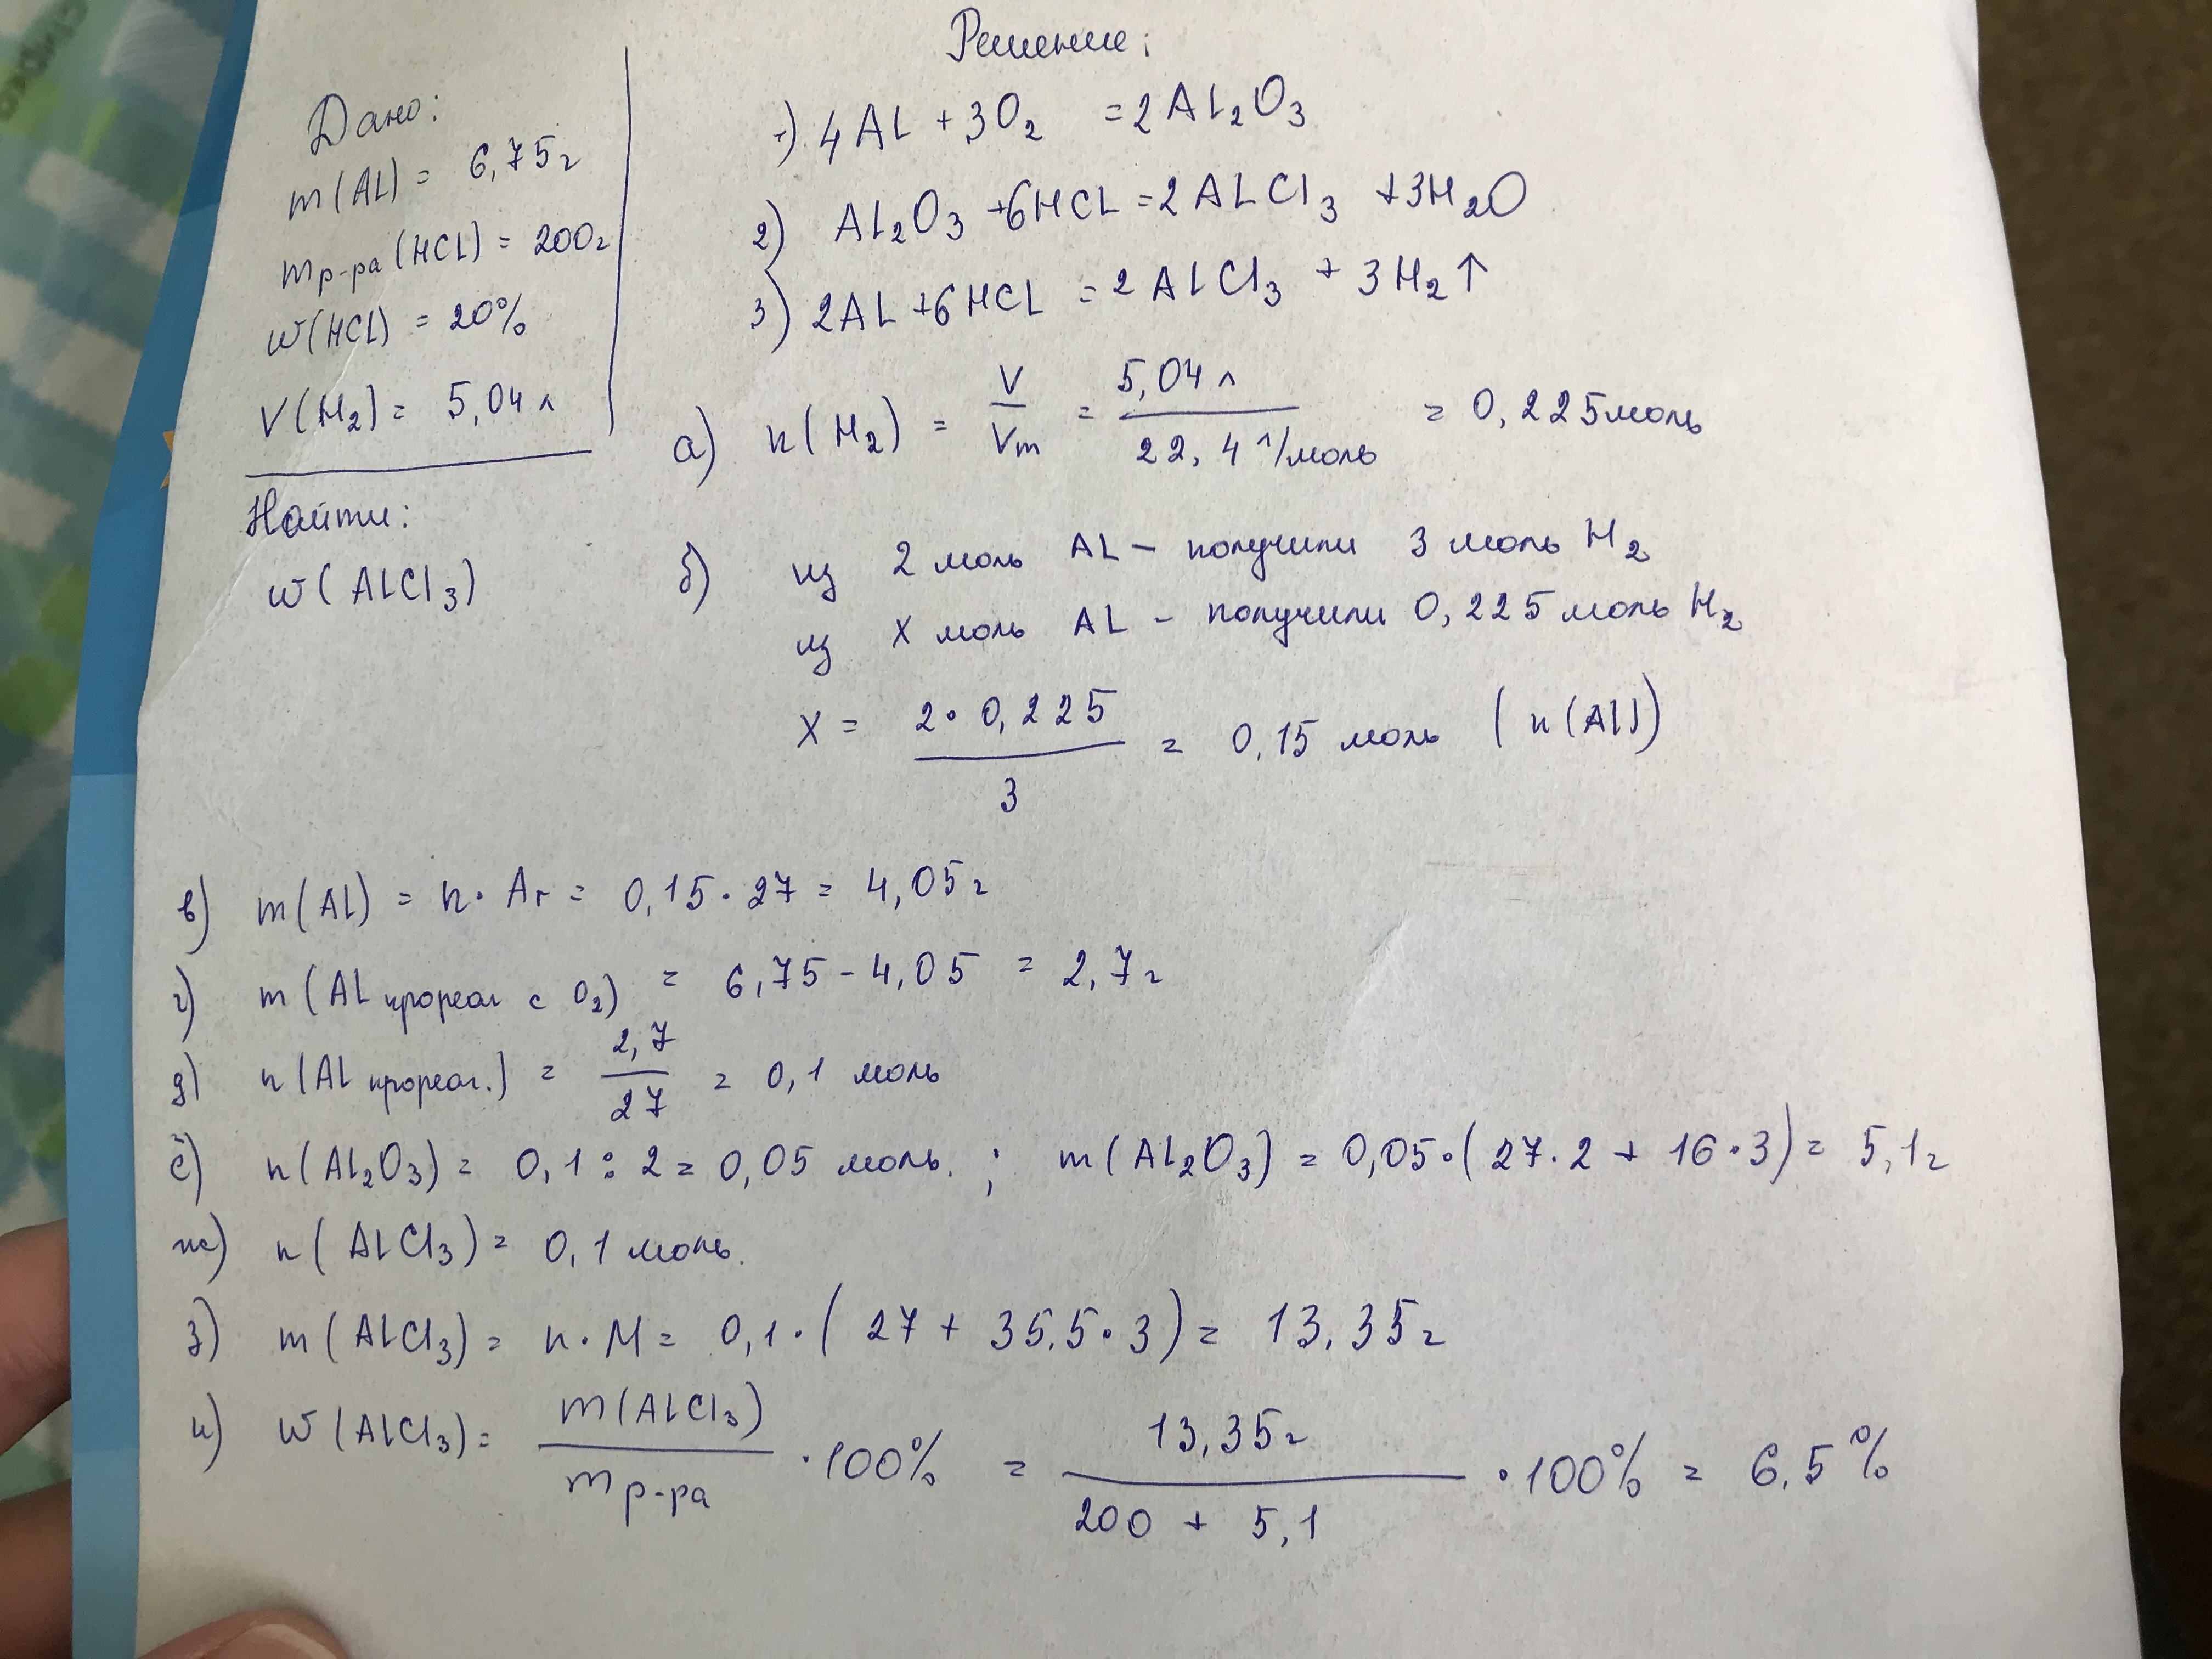 Решение:
Дано:
m(Al) = 6,75г
mр-ра(HCl) = 200г
w(HCl) = 20%
V(H₂) = 5,04 л
Найти:
w(AlCl₃)
1) 4Al + 3O₂ = 2Al₂O₃
2) Al₂O₃ + 6HCl = 2AlCl₃ + 3H₂O
3) 2Al + 6HCl = 2AlCl₃ + 3H₂↑
а) n(H₂) = V/Vm = 5,04 л / 22,4 л/моль = 0,225 моль
б) из 2 моль Al – получили 3 моль H₂
из X моль Al – получили 0,225 моль H₂
X = 2·0,225 / 3 = 0,15 моль (n(Al))
в) m(Al) = n·Ar = 0,15·27 = 4,05г
г) m(Al прореаг с O₂) = 6,75 - 4,05 = 2,7г
д) n(Al прореаг.) = 2,7/27 = 0,1 моль
ё) n(Al₂O₃) = 0,1 : 2 = 0,05 моль. ; m(Al₂O₃) = 0,05·(27·2 + 16·3) = 5,1г
ж) n(AlCl₃) = 0,1 моль.
з) m(AlCl₃) = n·M = 0,1·(27 + 35,5·3) = 13,35г
и) w(AlCl₃) = m(AlCl₃)/mр-ра ·100% = 13,35г / 200 + 5,1 ·100% = 6,5%